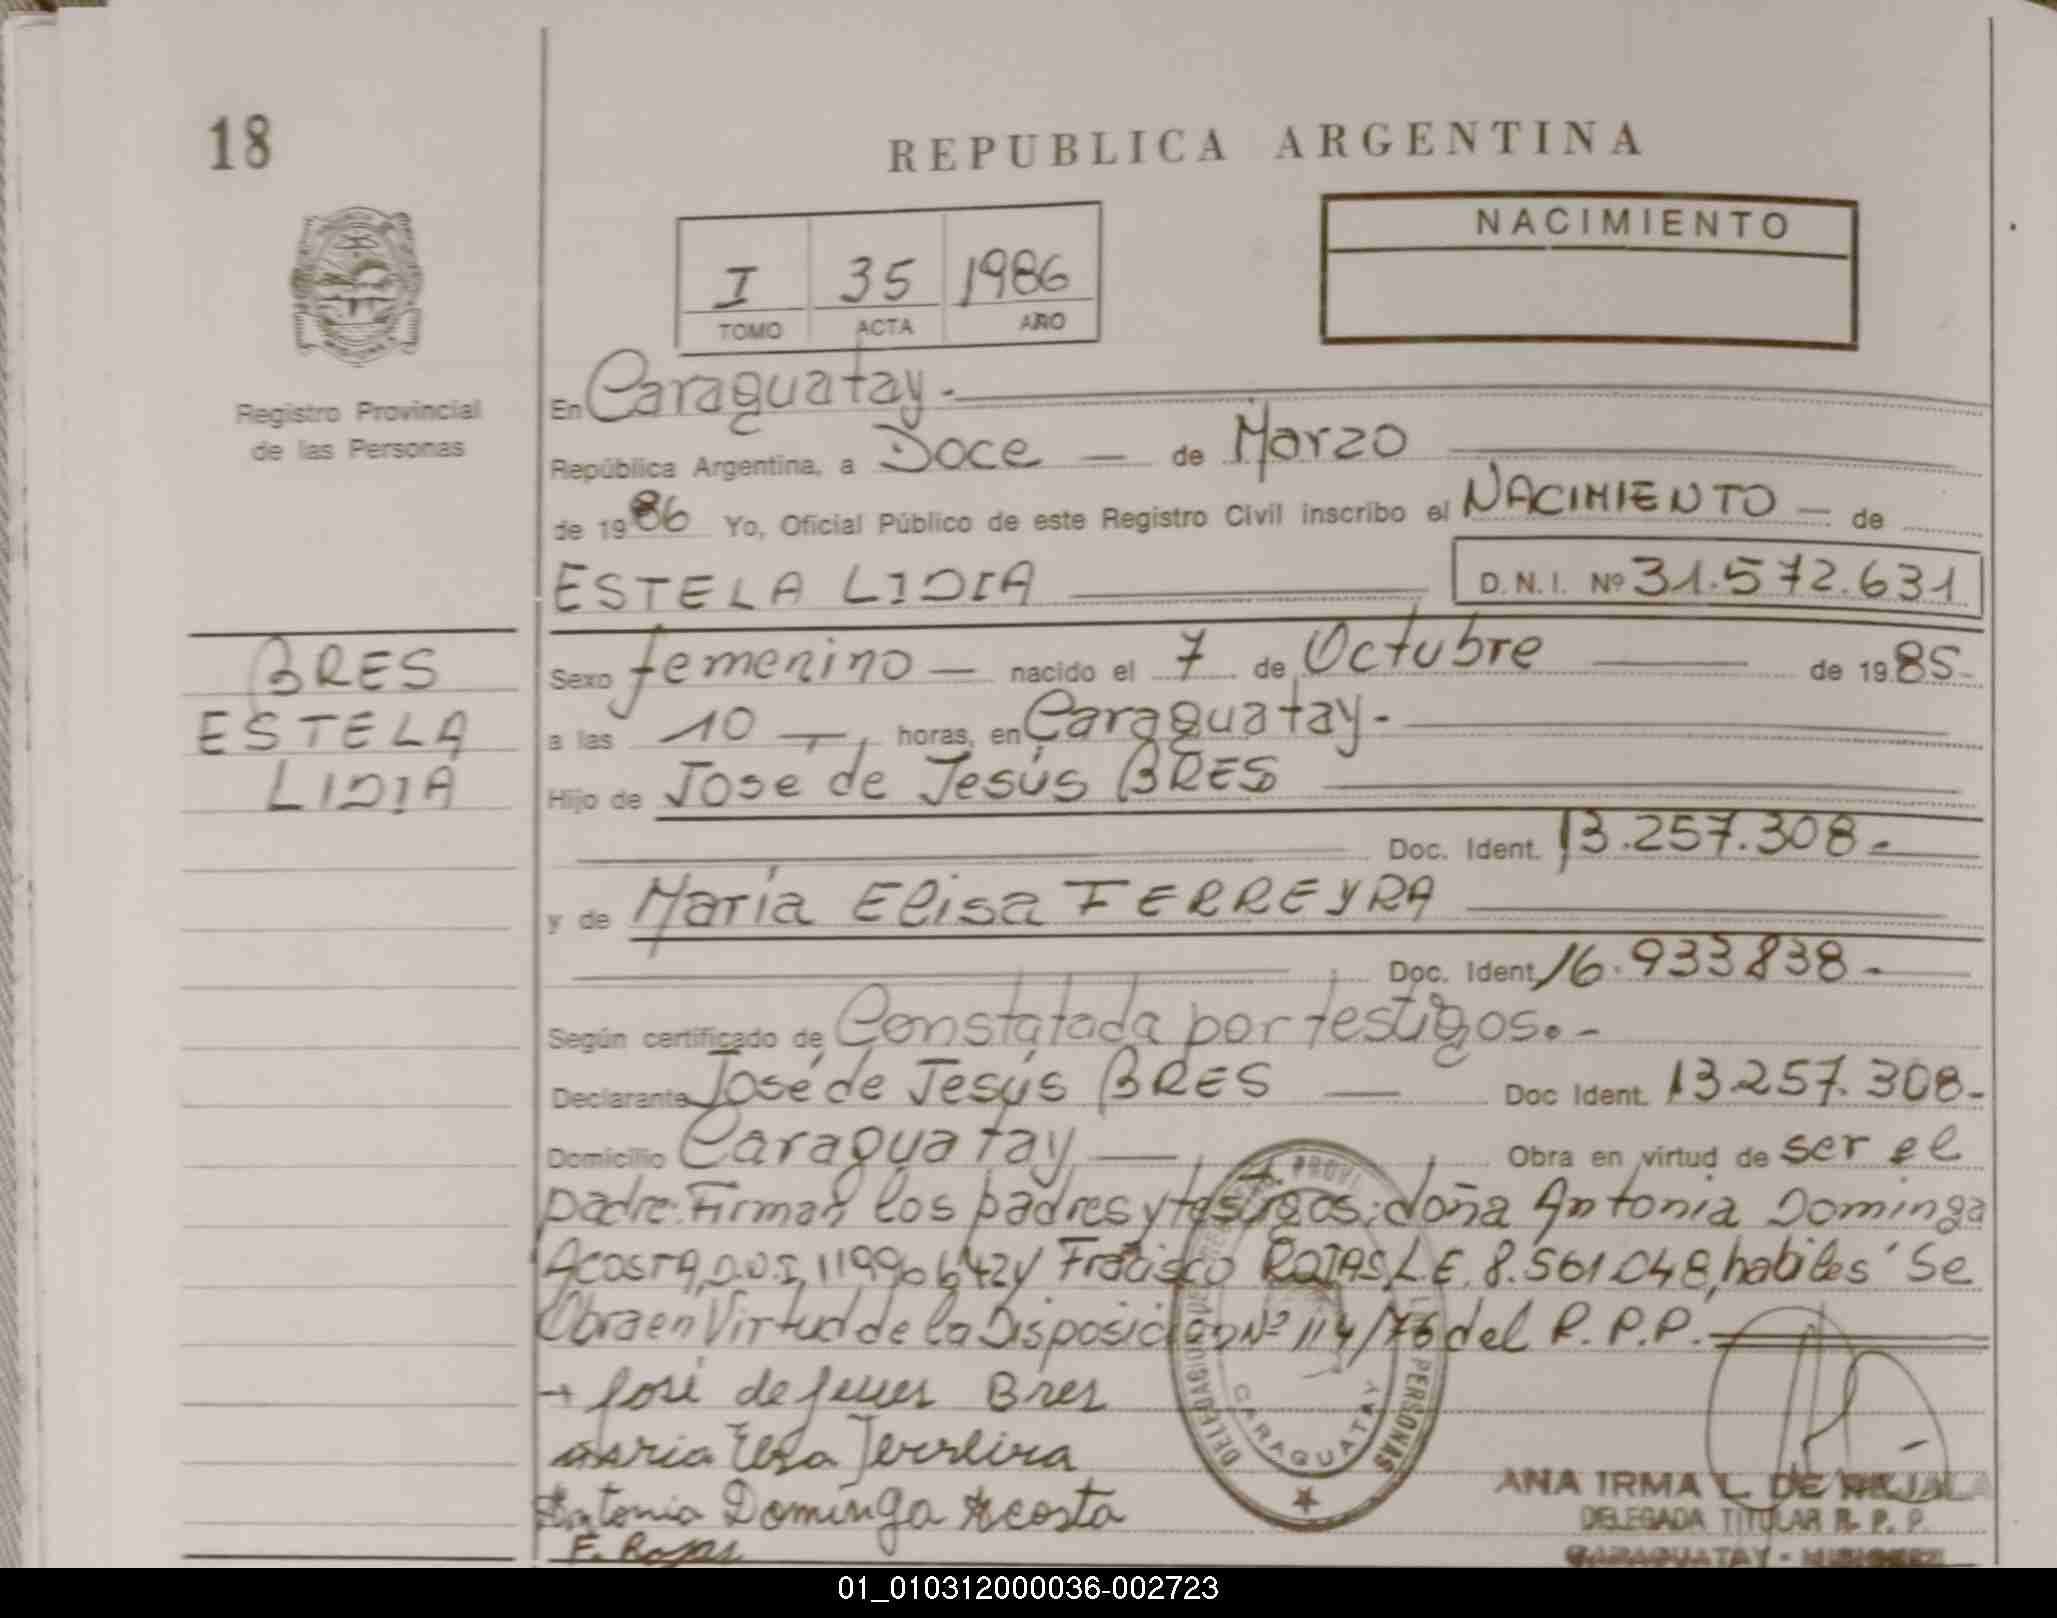 18
REPUBLICA ARGENTINA
NACIMIENTO
I 35 1986
TOMO ACTA AÑO
Registro Provincial
de las Personas
En Caraguatay.-
República Argentina, a Doce — de Marzo
de 1986 Yo, Oficial Público de este Registro Civil inscribo el NACIMIENTO — de
ESTELA LIDIA D.N.I. Nº 31.572.631
BRES
ESTELA
LIDIA
Sexo femenino — nacido el 7 de Octubre de 1985-
a las 10 horas, en Caraguatay-
Hijo de Jose de Jesús BRES
Doc. Ident. 13.257.308-
y de María Elisa FERREYRA
Doc. Ident 16.933838-
Según certificado de Constatada por testigos.-
Declarante José de Jesús BRES — Doc Ident. 13257.308-
Domicilio Caraguatay — Obra en virtud de ser el
padre. Firman los padres y testigos: doña Antonia Dominga
Acosta, y ROJAS L.E. 8.561.048, habiles Se
Obra en Virtud de la Disposición Nº 114/76 del R.P.P.
José de Jesus Bres
maria
Antonia Dominga Acosta
F. Rojas
CARAGUATAY
PERSONAS
ANA IRMA L. DE
DELEGADA TITULAR R. P. P.
CARAGUATAY - MISIONES
01_010312000036-002723